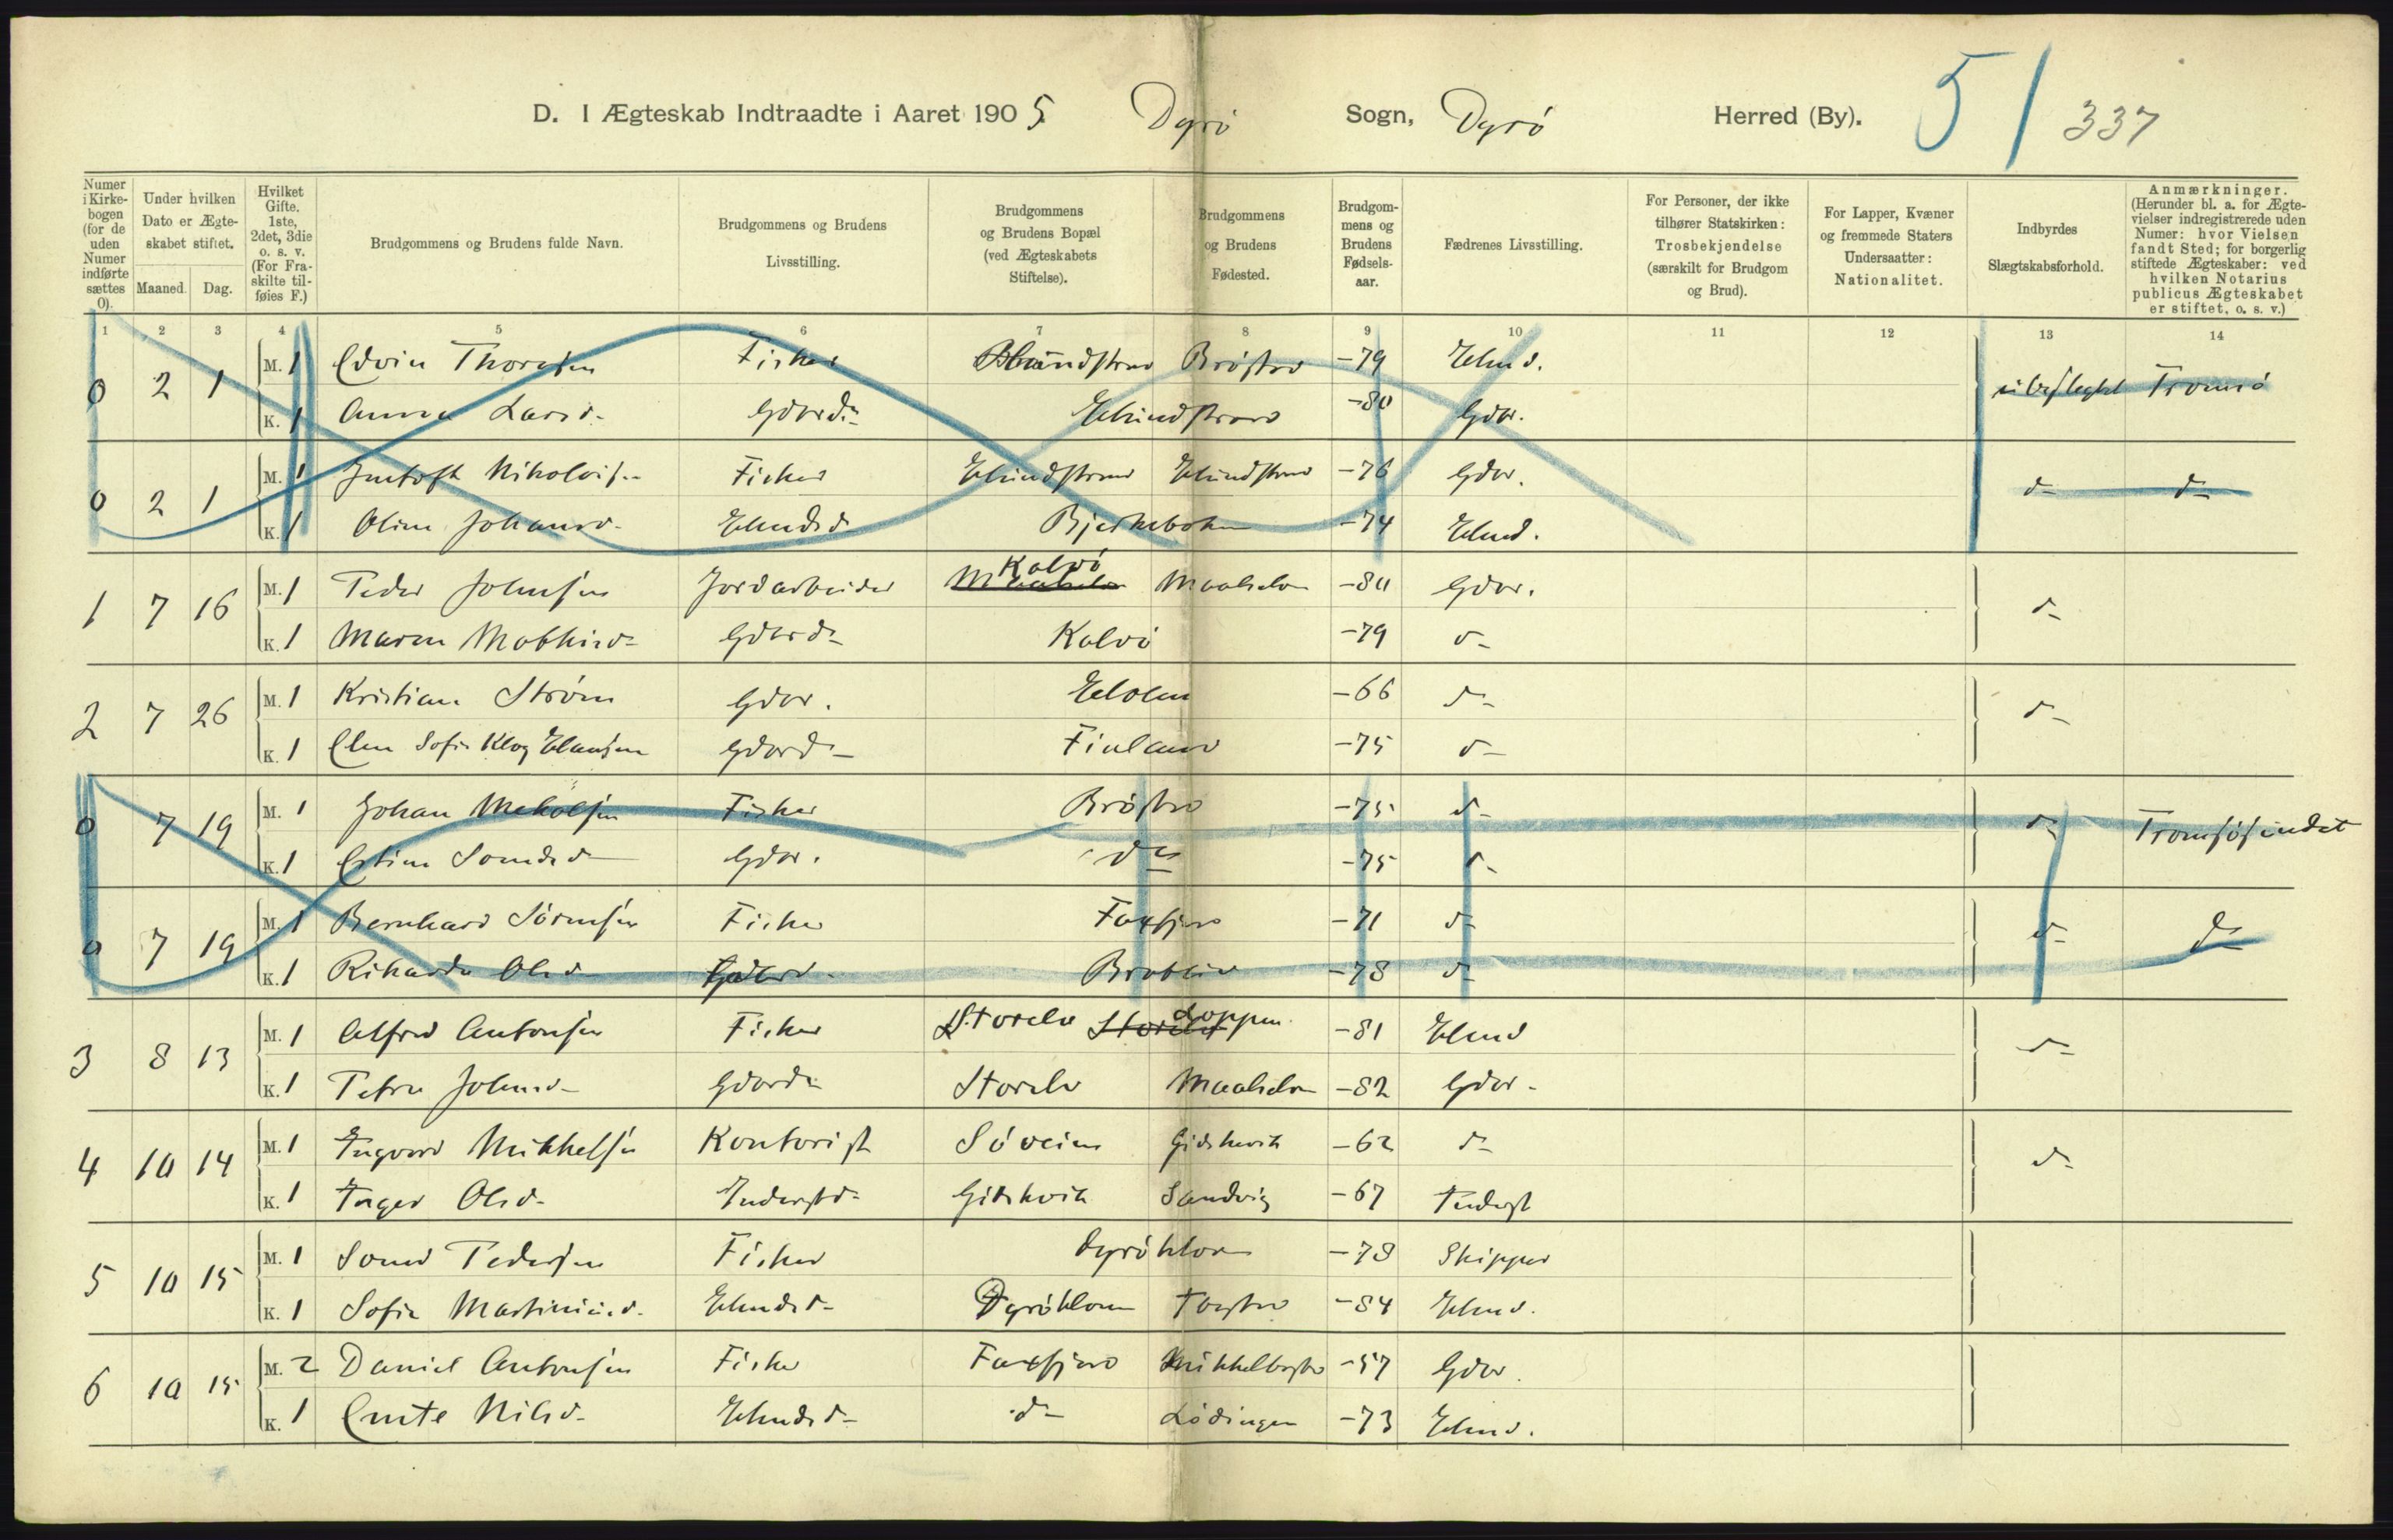 D. I Ægteskab Indtraadte i Aaret 1905. Dyrö Sogn, Dyrö Herred (By). 5/ 337
Numer i Kirkebogen (for de uden Numer indførte sættes 0).
Under hvilken Dato er Ægteskabet stiftet. Maaned. Dag.
Hvilket Gifte. 1ste, 2det, 3die o. s. v. (For Fraskilte tilføies F.)
Brudgommens og Brudens fulde Navn.
Brudgommens og Brudens Livsstilling.
Brudgommens og Brudens Bopæl (ved Ægteskabets Stiftelse).
Brudgommens og Brudens Fødested.
Brudgommens og Brudens Fødselsaar.
Fædrenes Livsstilling.
For Personer, der ikke tilhører Statskirken: Trosbekjendelse (særskilt for Brudgom og Brud).
For Lapper, Kvæner og fremmede Staters Undersaatter: Nationalitet.
Indbyrdes Slægtskabsforhold.
Anmærkninger. (Herunder bl. a. for Ægtevielser indregistrerede uden Numer: hvor Vielsen fandt Sted; for borgerlig stiftede Ægteskaber: ved hvilken Notarius publicus Ægteskabet er stiftet, o. s. v.)
1 2 3 4 5 6 7 8 9 10 11 12 13 14
0 2 1 M. 1 Edvin Thoresen Fisker Brøstad -79 ubeslegtet Tromsö
K. 1 Anna Larsd. Gdbrd. -80 Gdbr.
0 2 1 M. 1 Nikolais. Fisker -76 Gdbr. d- d-
K. 1 Oline Johansd. -74
1 7 16 M. 1 Peder Johnsen Jordarbeider Kalvö Maalselv -80 Gdbr. d-
K. 1 Maren Mathisd- Gdbrd- Kalvö -79 d-
2 7 26 M. 1 Kristian Strøm Gdbr. -66 d- d-
K. 1 Elen Sofie Klog Gdbrd- Finland -75 d-
0 7 19 M. 1 Johan Fisker Brøstad -75 d- d- Tromsösundet
K. 1 Gdbr. do -75 d-
0 7 19 M. 1 Bernhard Sörensen Fisker Faxfjord -71 d- d- d-
K. 1 Rikarda Olsd- -78 d-
3 8 13 M. 1 Alfred Antonsen Fisker Storelv Loppen -81 d-
K. 1 Petra Johnsd- Gdbrd- Storelv Maalselv -82 Gdbr-
4 10 14 M. 1 Ingvard Mikkelsen Kontorist Söveien Gidskevik -62 d- d-
K. 1 Inger Olsd- Inderstd- Gidskevik Sandvig -67 Inderst
5 10 15 M. 1 Pedersen Fisker Dyröklov -78 Skipper
K. 1 Sofie Dyröklov -84
6 10 15 M. 2 Daniel Antonsen Fisker Faxfjord Mikkelbostad -57 Gdbr.
K. 1 Nilsd- d- Lödingen -73